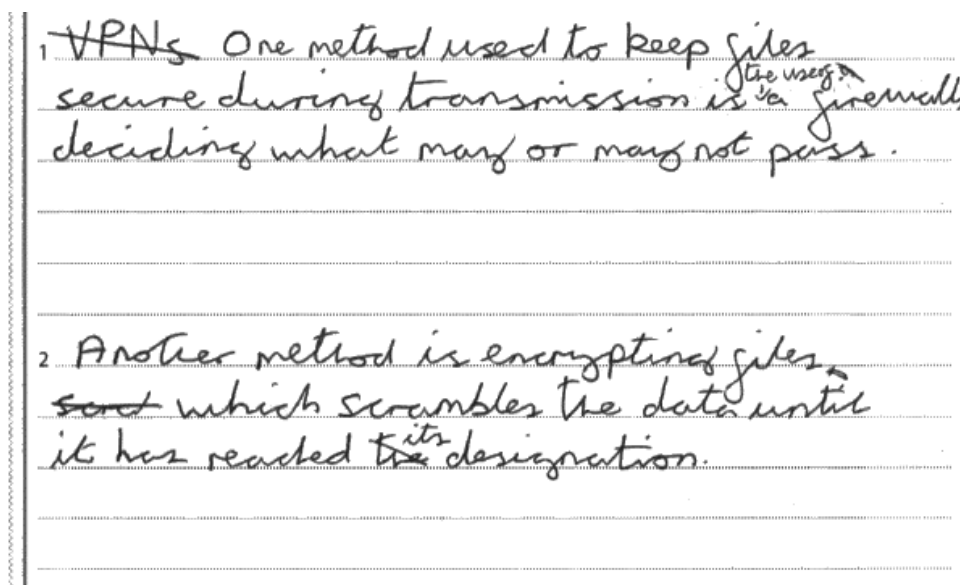 1 VPNs One method used to keep files
the users
secure during transmission is a firewall
deciding what may or may not pass.
2 Another method is encrypting files,
which scrambles the data until
its
it has reached the designation.